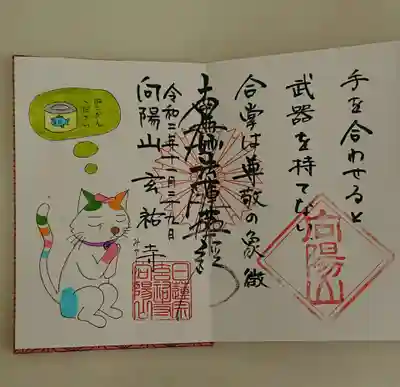 手を合わせると
武器を持てない
向陽山
合掌は尊敬の象徴
南無妙法蓮華経
令和二年十
向陽山玄祐寺
日蓮宗
玄祐寺
向陽山